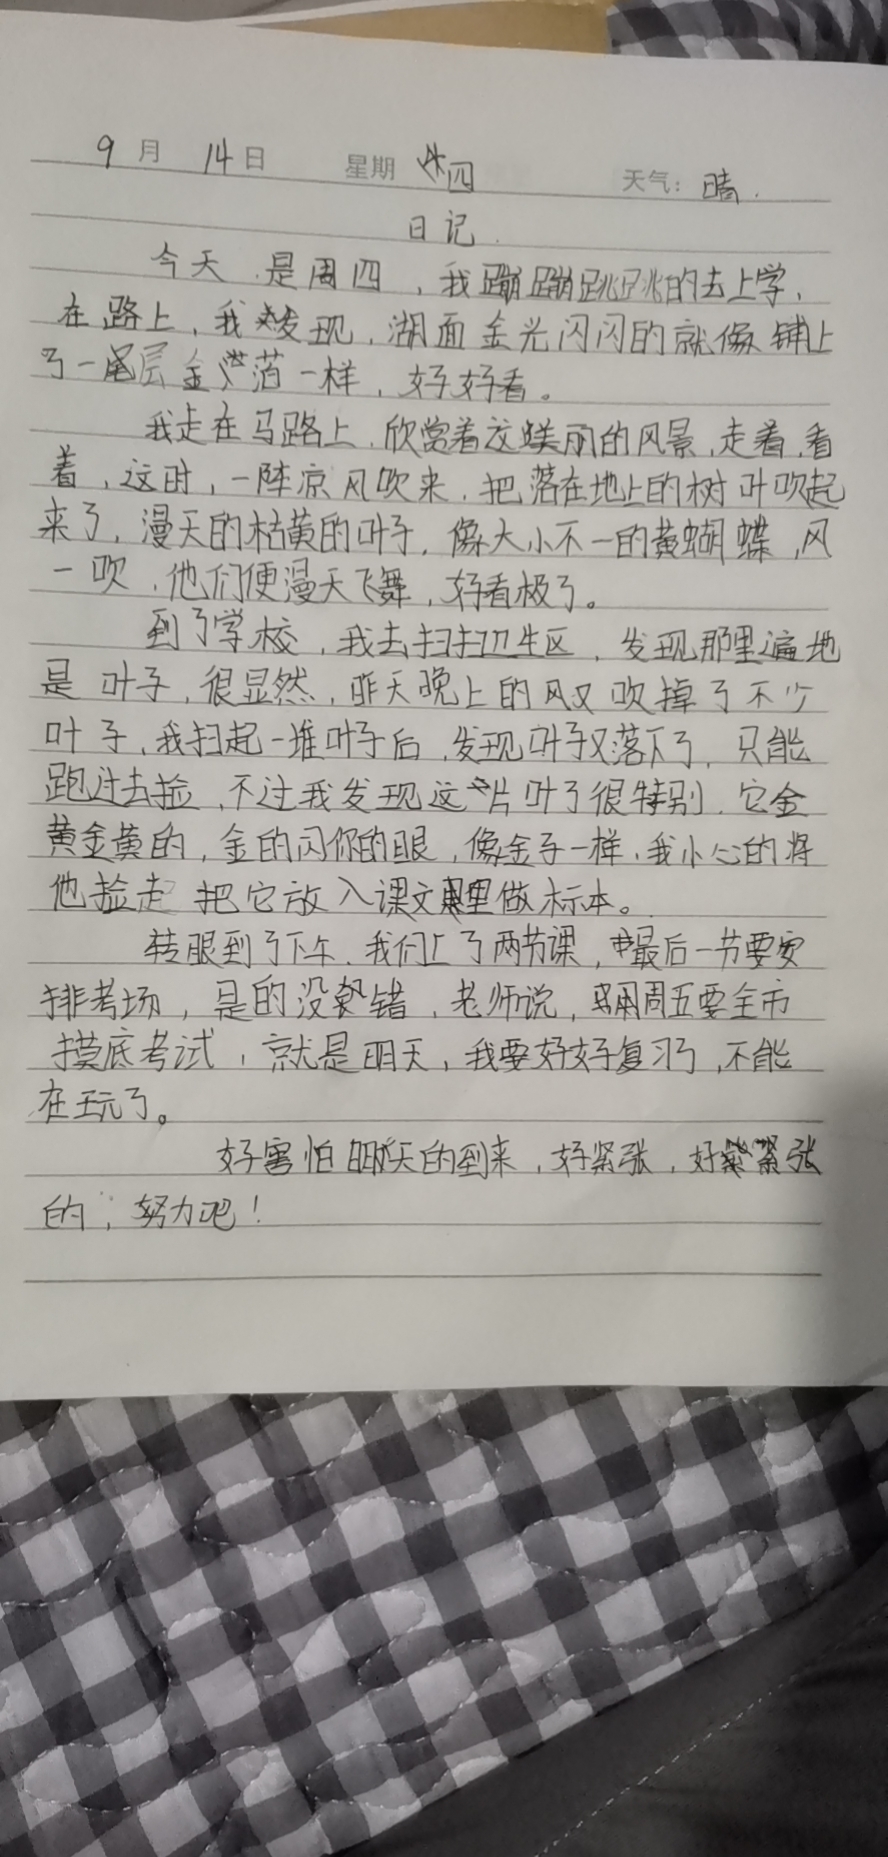 9月 14日 星期 四 天气: 晴.
日记.
今天.是周四,我蹦蹦跳跳的去上学,
在路上,我发现,湖面金光闪闪的就像铺上
了一层金箔一样,好好看。
我走在马路上,欣赏着这美丽的风景,走着,看
着,这时,一阵凉风吹来,把落在地上的树叶吹起
来了,漫天的枯黄的叶子,像大小不一的黄蝴蝶,风
一吹,他们便漫天飞舞,好看极了。
到了学校,我去扫卫生区,发现那里遍地
是叶子,很显然,昨天晚上的风又吹掉了不少
叶子,我扫起一堆叶子后,发现叶子又落下了,只能
跑过去捡,不过我发现这片叶子很特别,它金
黄金黄的,金的闪你的眼,像金子一样,我小心的将
他捡走 把它放入课文里做标本。
转眼到了下午,我们上了两节课,最后一节要安
排考场,是的没错,老师说,周五要全市
摸底考试,就是明天,我要好好复习了,不能
在玩了。
好害怕明天的到来,好紧张,好紧张
的,努力吧!